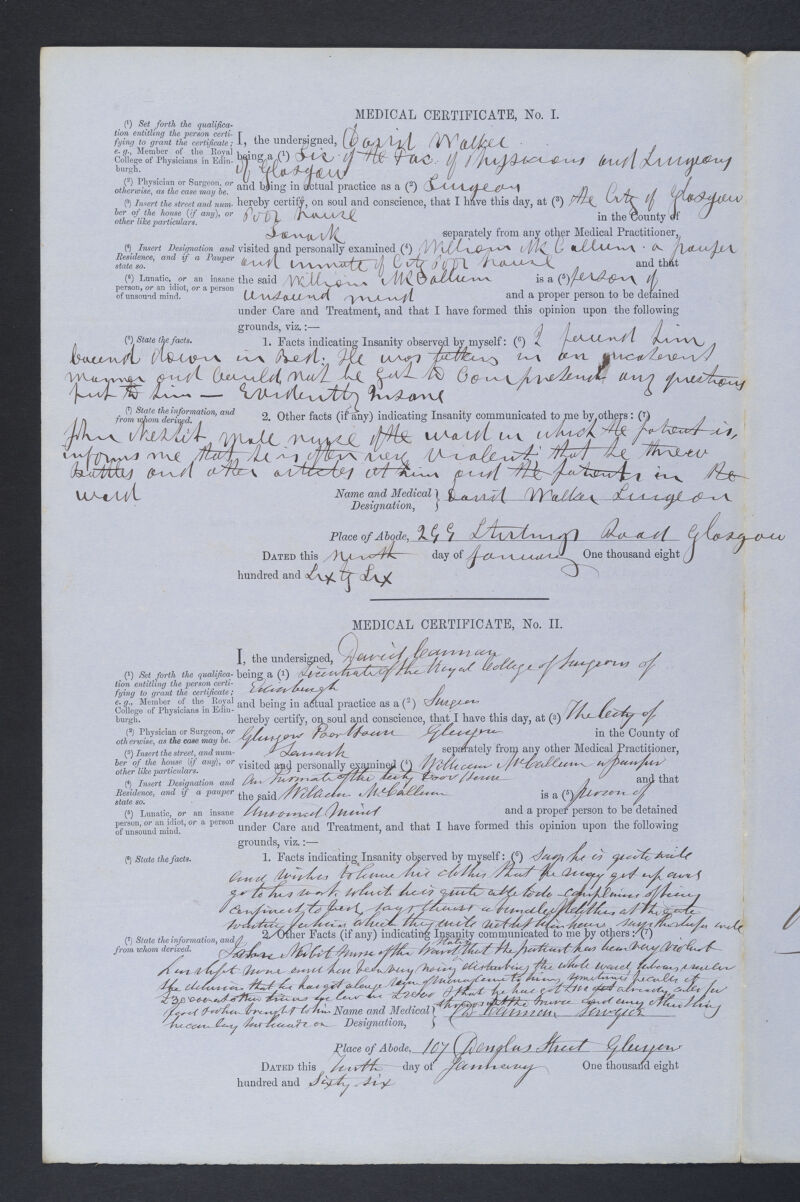 MEDICAL CERTIFICATE, No. I.
(1) Set forth the qualifica-
tion entitling the person certi-
fying to grant the certificate;
e.g., Member of the Royal
College of Physicians in Edin-
burgh.
(2) Physician or Surgeon, or
otherwise, as the case may be.
(3) Insert the street and num-
ber of the house (if any), or
other like particulars.
(4) Insert Designation and
Residence, and if a Pauper
state so.
(5) Lunatic, or an insane
person, or an idiot, or a person
of unsound mind.
I, the undersigned, David Walker
being a (1) Lic. of the Fac. of Physicians and Surgeons
of Glasgow
and being in actual practice as a (2) Surgeon
hereby certify, on soul and conscience, that I have this day, at (3) the City of Glasgow
Poor house in the County of
Lanark separately from any other Medical Practitioner,
visited and personally examined (4) William McCallum a pauper
and inmate of City Poor house and that
the said William McCallum is a (5) person of
unsound mind and a proper person to be detained
under Care and Treatment, and that I have formed this opinion upon the following
grounds, viz.:—
(6) State the facts.
1. Facts indicating Insanity observed by myself: (6) I found him
bound down in Bed. He was talking in an incoherent
manner and could not be got to comprehend any questions
put to him — Evidently Insane
(7) State the information, and
from whom derived.
2. Other facts (if any) indicating Insanity communicated to me by others: (7)
John Nesbit, male nurse of the ward in which the patient is,
informs me that he is often very violent that he threw
bottles and other articles at him and the patients in the
ward
Name and Medical Designation, David Walker Surgeon
Place of Abode, 299 Stirlings Road Glasgow
DATED this ninth day of January One thousand eight
hundred and Sixty Six
MEDICAL CERTIFICATE, No. II.
(1) Set forth the qualifica-
tion entitling the person certi-
fying to grant the certificate;
e.g., Member of the Royal
College of Physicians in Edin-
burgh.
(2) Physician or Surgeon, or
otherwise, as the case may be.
(3) Insert the street, and num-
ber of the house (if any), or
other like particulars.
(4) Insert Designation and
Residence, and if a pauper
state so.
(5) Lunatic, or an insane
person, or an idiot, or a person
of unsound mind.
I, the undersigned, David
being a (1) Licentiate of the Royal College of Surgeons of
Edinburgh
and being in actual practice as a (2) Surgeon
hereby certify, on soul and conscience, that I have this day, at (3) The City of
Glasgow Poor House Glasgow in the County of
Lanark separately from any other Medical Practitioner,
visited and personally examined (4) William McCallum a pauper
An Inmate of the City Poor House and that
the said William McCallum is a (5) person of
Unsound Mind and a proper person to be detained
under Care and Treatment, and that I have formed this opinion upon the following
grounds, viz.:—
(6) State the facts.
1. Facts indicating Insanity observed by myself: (6) Says he is quite well
and wishes to have his clothes that he may get up and
go to his work which he is quite able to do complains of being
confined to bed, says a bundle of clothes at the gate
waiting for him which they will not let him have says he sleeps well
(7) State the information, and
from whom derived.
2. Other Facts (if any) indicating Insanity communicated to me by others: (7)
John Nesbit Nurse of the Ward states that the patient has been very violent
has slept none and has been very noisy disturbing the whole ward, labours under
the delusion that he has got a large sum of money sometimes
and that he has got already
food & when brought to him throws it at the nurse and any other thing
he can lay his hands on
Name and Medical Designation, Surgeon
Place of Abode, 107 Douglas Street Glasgow
DATED this ninth day of January One thousand eight
hundred and Sixty six